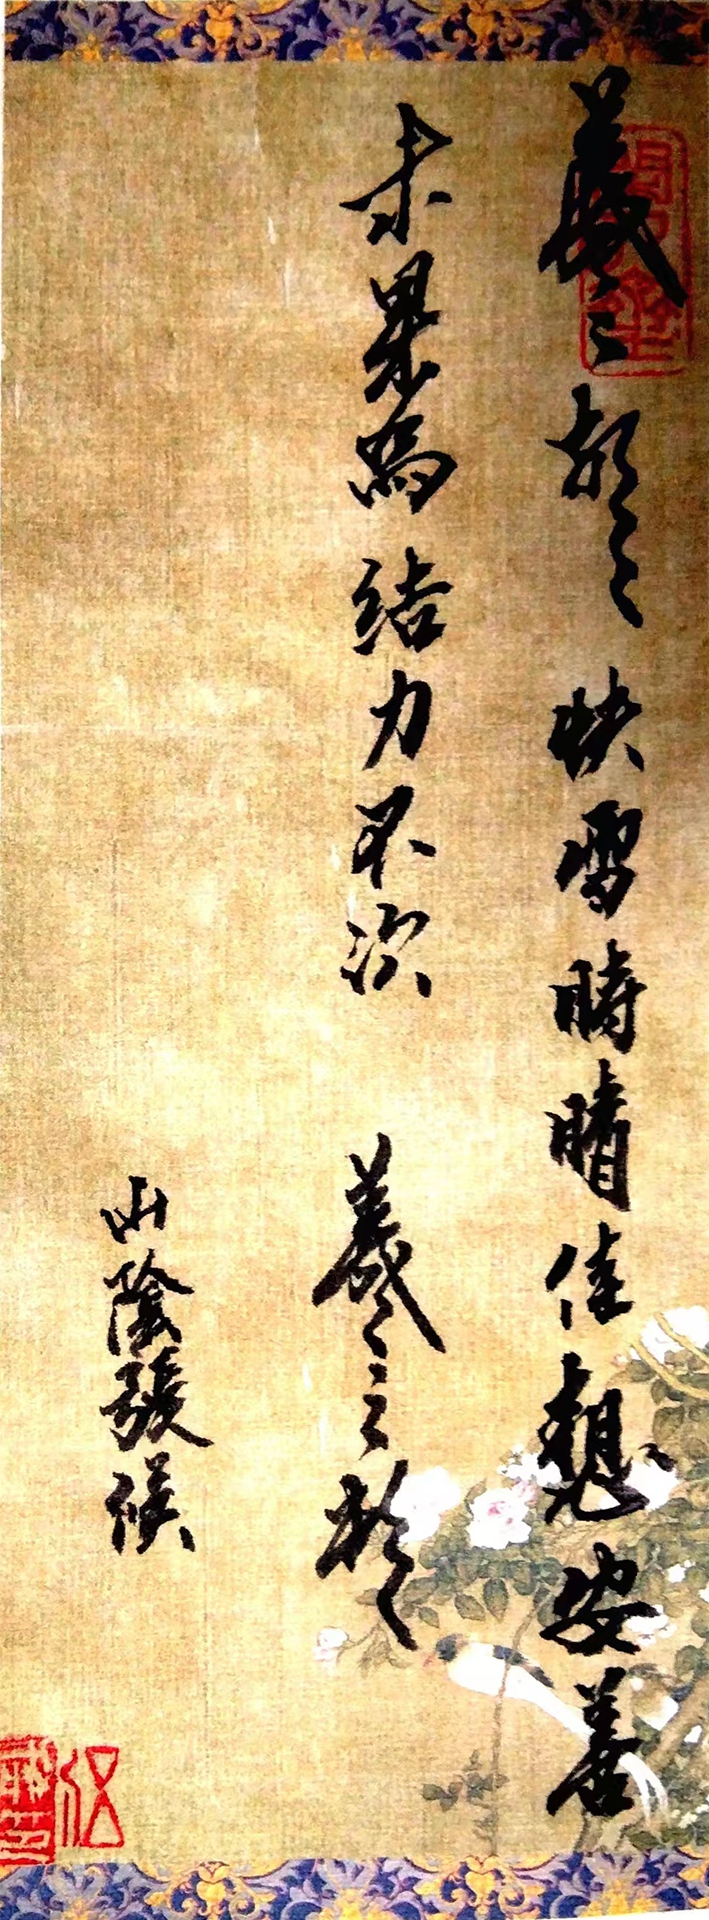 羲之頓首快雪時晴佳想安善
未果為結力不次 羲之頓首
山陰張侯